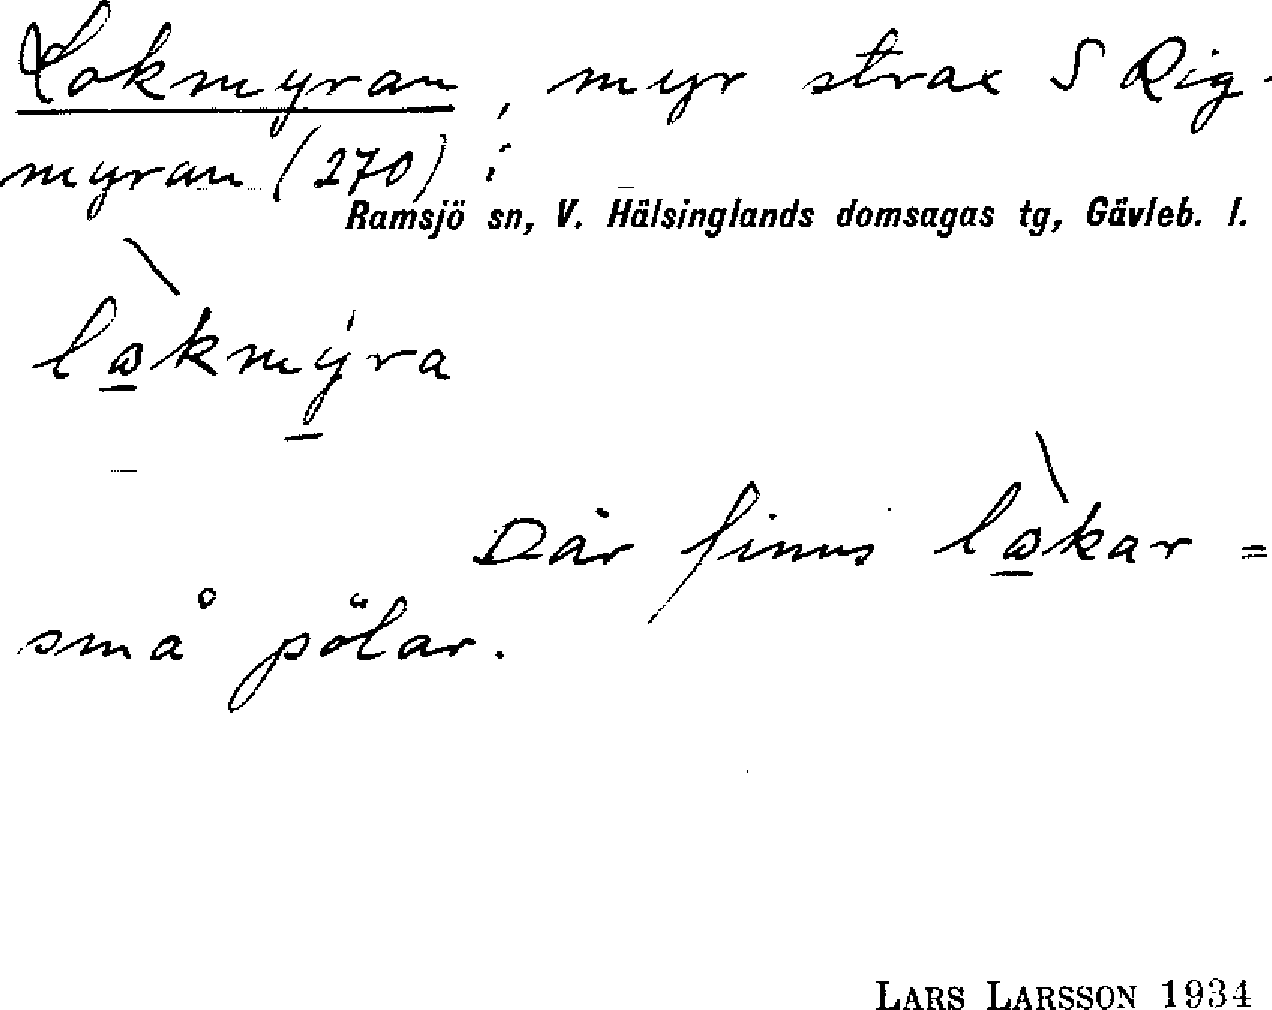 Lokmyran, myr strax S Rig-
myran (270) i
Ramsjö sn, V. Hälsinglands domsagas tg, Gävleb. l.
lò̲kmý̲ra
Där finns lò̲kar =
små pölar.
LARS LARSSON 1934